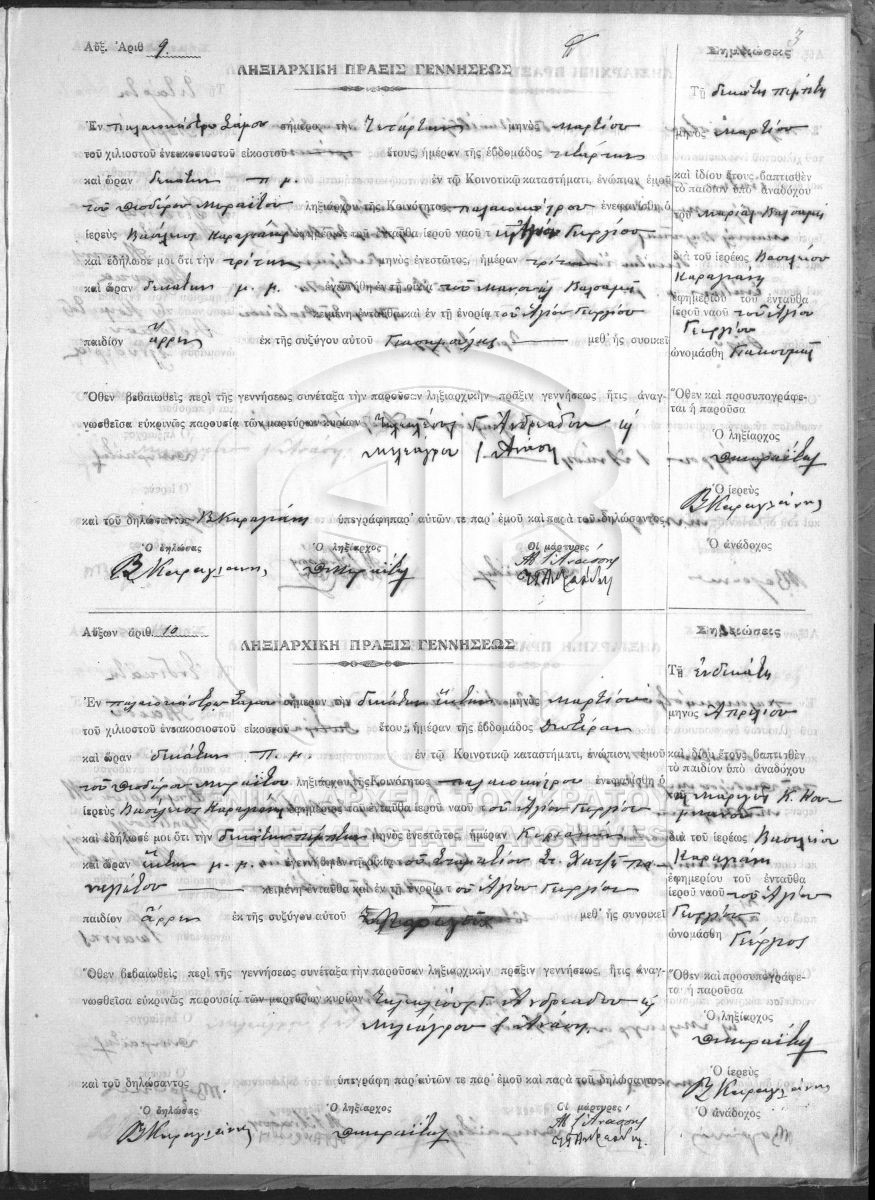 Αὔξ. Ἀριθ 9
ΛΗΞΙΑΡΧΙΚΗ ΠΡΑΞΙΣ ΓΕΝΝΗΣΕΩΣ
Ἐν Παλαιοκάστρῳ Σάμου σήμερον τὴν Τετάρτην μηνὸς Μαρτίου
τοῦ χιλιοστοῦ ἐνεακοσιοστοῦ εἰκοστοῦ ἔτους, ἡμέραν τῆς ἑβδομάδος τετάρτην
καὶ ὥραν δεκάτην π. μ. ἐν τῷ Κοινοτικῷ καταστήματι, ἐνώπιον ἐμοῦ
τοῦ ληξιάρχου τῆς Κοινότητος Παλαιοκάστρου ἐνεφανίσθη ὁ
ἱερεὺς Βασίλειος Καραγιάννης ἐφημέριος τοῦ ἐνταῦθα ἱεροῦ ναοῦ τοῦ Ἁγίου Γεωργίου
καὶ ἐδήλωσέ μοι ὅτι τὴν τρίτην μηνὸς ἐνεστῶτος, ἡμέραν τρίτην
καὶ ὥραν δεκάτην μ. μ. ἐγεννήθη ἐν τῇ οἰκίᾳ τοῦ Μανουὴλ
κειμένῃ ἐνταῦθα καὶ ἐν τῇ ἐνορίᾳ τοῦ Ἁγίου Γεωργίου
παιδίον ἄρρεν ἐκ τῆς συζύγου αὐτοῦ μεθ' ἧς συνοικεῖ
Ὅθεν βεβαιωθεὶς περὶ τῆς γεννήσεως συνέταξα τὴν παροῦσαν ληξιαρχικὴν πρᾶξιν γεννήσεως, ἥτις ἀναγ-
νωσθεῖσα εὐκρινῶς παρουσίᾳ τῶν μαρτύρων κυρίων Γ. Ἀνδρεάδου καὶ
Μελεάγρου Ι. Ἀνάση
καὶ τοῦ δηλώσαντος Β Καραγιάννη ὑπεγράφη παρ' αὐτῶν τε παρ' ἐμοῦ καὶ παρὰ τοῦ δηλώσαντος
Ὁ δηλώσας Ὁ ληξίαρχος Οἱ μάρτυρες
Β Καραγιάννης
3
Σημειώσεις
Τῇ δεκάτῃ πέμπτῃ
μηνὸς Μαρτίου
καὶ ἰδίου ἔτους βαπτισθὲν
τὸ παιδίον ὑπὸ ἀναδόχου
τοῦ
διὰ τοῦ ἱερέως Βασιλείου
Καραγιάννη
ἐφημερίου τοῦ ἐνταῦθα
ἱεροῦ ναοῦ τοῦ Ἁγίου
Γεωργίου
ὠνομάσθη
Ὅθεν καὶ προσυπογράφε-
ται ἡ παροῦσα
Ὁ ληξίαρχος
Ὁ ἱερεὺς
Β Καραγιάννης
Ὁ ἀνάδοχος
Αὔξων ἀριθ. 10
ΛΗΞΙΑΡΧΙΚΗ ΠΡΑΞΙΣ ΓΕΝΝΗΣΕΩΣ
Ἐν Παλαιοκάστρῳ Σάμου σήμερον τὴν δεκάτην ἕκτην μηνὸς Μαρτίου
τοῦ χιλιοστοῦ ἐνεακοσιοστοῦ εἰκοστοῦ ἔτους, ἡμέραν τῆς ἑβδομάδος Δευτέραν
καὶ ὥραν δεκάτην π. μ ἐν τῷ Κοινοτικῷ καταστήματι, ἐνώπιον, ἐμοῦ
τοῦ ληξιάρχου τῆς Κοινότητος Παλαιοκάστρου ἐνεφανίσθη ὁ
ἱερεὺς Βασίλειος Καραγιάννης ἐφημέριος τοῦ ἐνταῦθα ἱεροῦ ναοῦ τοῦ Ἁγίου Γεωργίου
καὶ ἐδήλωσέ μοι ὅτι τὴν δεκάτην πέμπτην μηνὸς ἐνεστῶτος, ἡμέραν Κυριακὴν
καὶ ὥραν ἕκτην μ. μ. ἐγεννήθη ἐν τῇ οἰκίᾳ τοῦ Σταματίου Στ.
κειμένῃ ἐνταῦθα καὶ ἐν τῇ ἐνορίᾳ τοῦ Ἁγίου Γεωργίου
παιδίον ἄρρεν ἐκ τῆς συζύγου αὐτοῦ μεθ' ἧς συνοικεῖ
Ὅθεν βεβαιωθεὶς περὶ τῆς γεννήσεως συνέταξα τὴν παροῦσαν ληξιαρχικὴν πρᾶξιν γεννήσεως, ἥτις ἀναγ-
νωσθεῖσα εὐκρινῶς παρουσίᾳ τῶν μαρτύρων κυρίων Γ. Ἀνδρεάδου καὶ
Μελεάγρου Ι. Ἀνάση
καὶ τοῦ δηλώσαντος ὑπεγράφη παρ' αὐτῶν τε παρ' ἐμοῦ καὶ παρὰ τοῦ δηλώσαντος
Ὁ δηλώσας Ὁ ληξίαρχος Οἱ μάρτυρες
Β Καραγιάννης
Σημειώσεις
Τῇ ἑνδεκάτῃ
μηνὸς Ἀπριλίου
καὶ ἰδίου ἔτους βαπτισθὲν
τὸ παιδίον ὑπὸ ἀναδόχου
διὰ τοῦ ἱερέως Βασιλείου
Καραγιάννη
ἐφημερίου τοῦ ἐνταῦθα
ἱεροῦ ναοῦ τοῦ Ἁγίου
Γεωργίου
ὠνομάσθη Γεώργιος
Ὅθεν καὶ προσυπογράφε-
ται ἡ παροῦσα
Ὁ ληξίαρχος
Ὁ ἱερεὺς
Β Καραγιάννης
Ὁ ἀνάδοχος